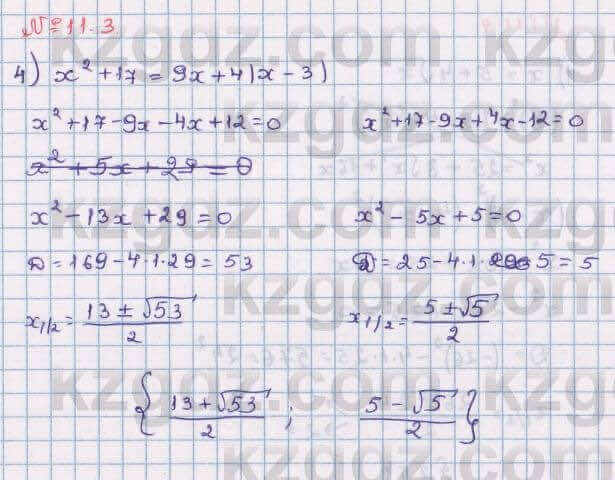 № 11.3
4) x² + 17 = 9x + 4|x - 3|
x² + 17 - 9x - 4x + 12 = 0    x² + 17 - 9x + 4x - 12 = 0
x² + 5x + 29 = 0
x² - 13x + 29 = 0    x² - 5x + 5 = 0
D = 169 - 4·1·29 = 53    D = 25 - 4·1·5 = 5
x1/2 = (13 ± √53)/2    x1/2 = (5 ± √5)/2
{ (13 + √53)/2 ; (5 - √5)/2 }
kzgdz.com